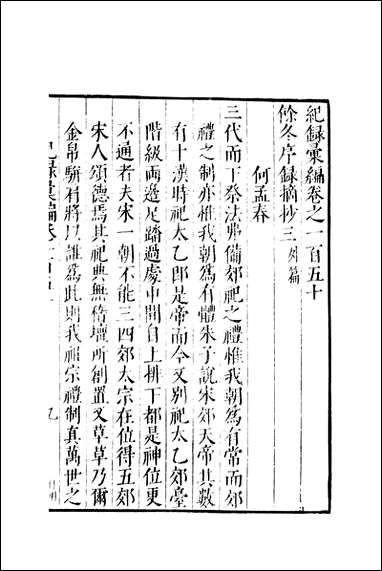 紀録彙編卷之一百五十
餘冬序録摘抄三 外篇
何孟春
三代而下祭法弗備郊祀之禮惟我朝爲有常而郊
禮之制亦惟我朝爲有體朱子說宋郊天帝其數
有十漢時祀太乙即是帝而今又别祀太乙郊臺
階級兩邊是踏過處中間自上排丁都是神位更
不通者夫宋一朝不能三四郊太宗在位得五郊
宋人頌德焉其祀典無稽壇所創置又草草乃爾
金帛駢有將以誰爲此則我祖宗禮制真萬世之